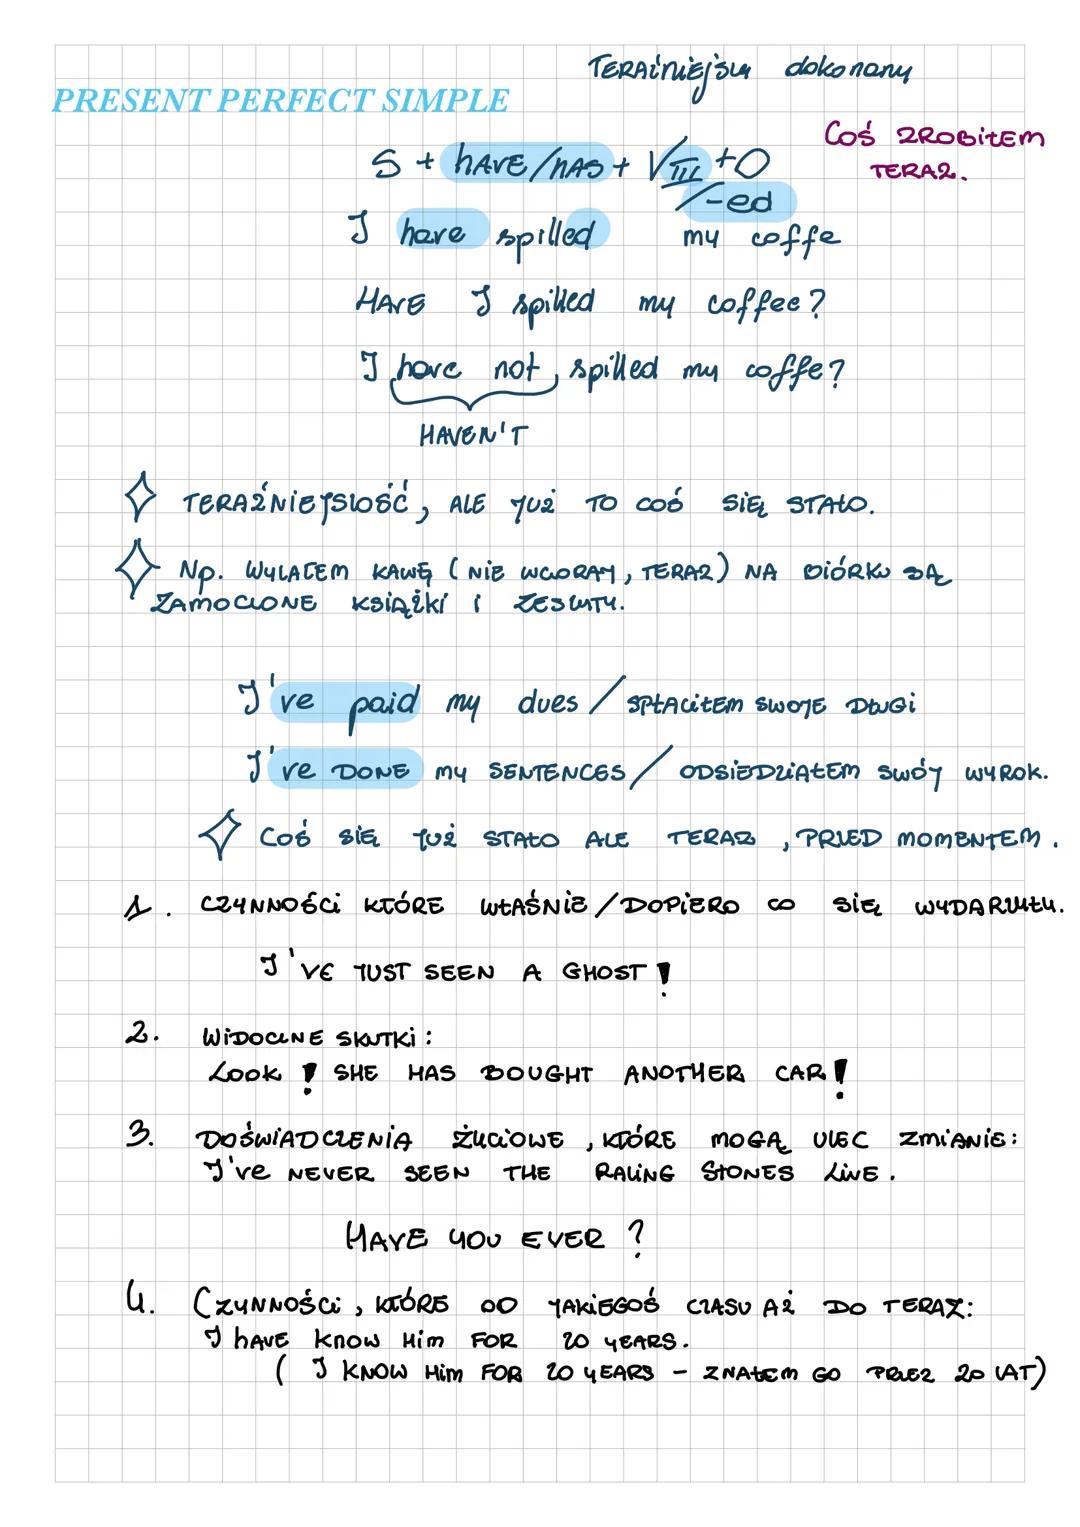 TERAźNIEJSZY dokonany
PRESENT PERFECT SIMPLE
COŚ ZROBIŁEM
TERAZ.
S + HAVE/HAS + VIII + O
/-ed
I have spilled my coffe
HAVE I spilled my coffee?
I have not spilled my coffe?
HAVEN'T
TERAŹNIEJSZOŚĆ, ALE JUŻ TO COŚ SIĘ STAŁO.
Np. WYLAŁEM KAWĘ (NIE WCZORAJ, TERAZ) NA BIÓRKU SĄ
ZAMOCZONE KSIĄŻKI I ZESZYTY.
I've paid my dues / SPŁACIŁEM SWOJE DŁUGI
I've DONE my SENTENCES / ODSIEDZIAŁEM SWÓJ WYROK.
COŚ SIĘ JUŻ STAŁO ALE TERAZ, PRZED MOMENTEM.
1. CZYNNOŚCI KTÓRE WŁAŚNIE/DOPIERO CO SIĘ WYDARZYŁY.
I'VE JUST SEEN A GHOST!
2. WIDOCZNE SKUTKI:
LOOK! SHE HAS BOUGHT ANOTHER CAR!
3. DOŚWIADCZENIA ŻYCIOWE, KTÓRE MOGĄ ULEC ZMIANIE:
I've NEVER SEEN THE RALING STONES LIVE.
HAVE YOU EVER?
4. CZYNNOŚCI, KTÓRE OD JAKIEGOŚ CZASU AŻ DO TERAZ:
I HAVE KNOW HIM FOR 20 YEARS.
( I KNOW HIM FOR 20 YEARS - ZNAŁEM GO PRZEZ 20 LAT)